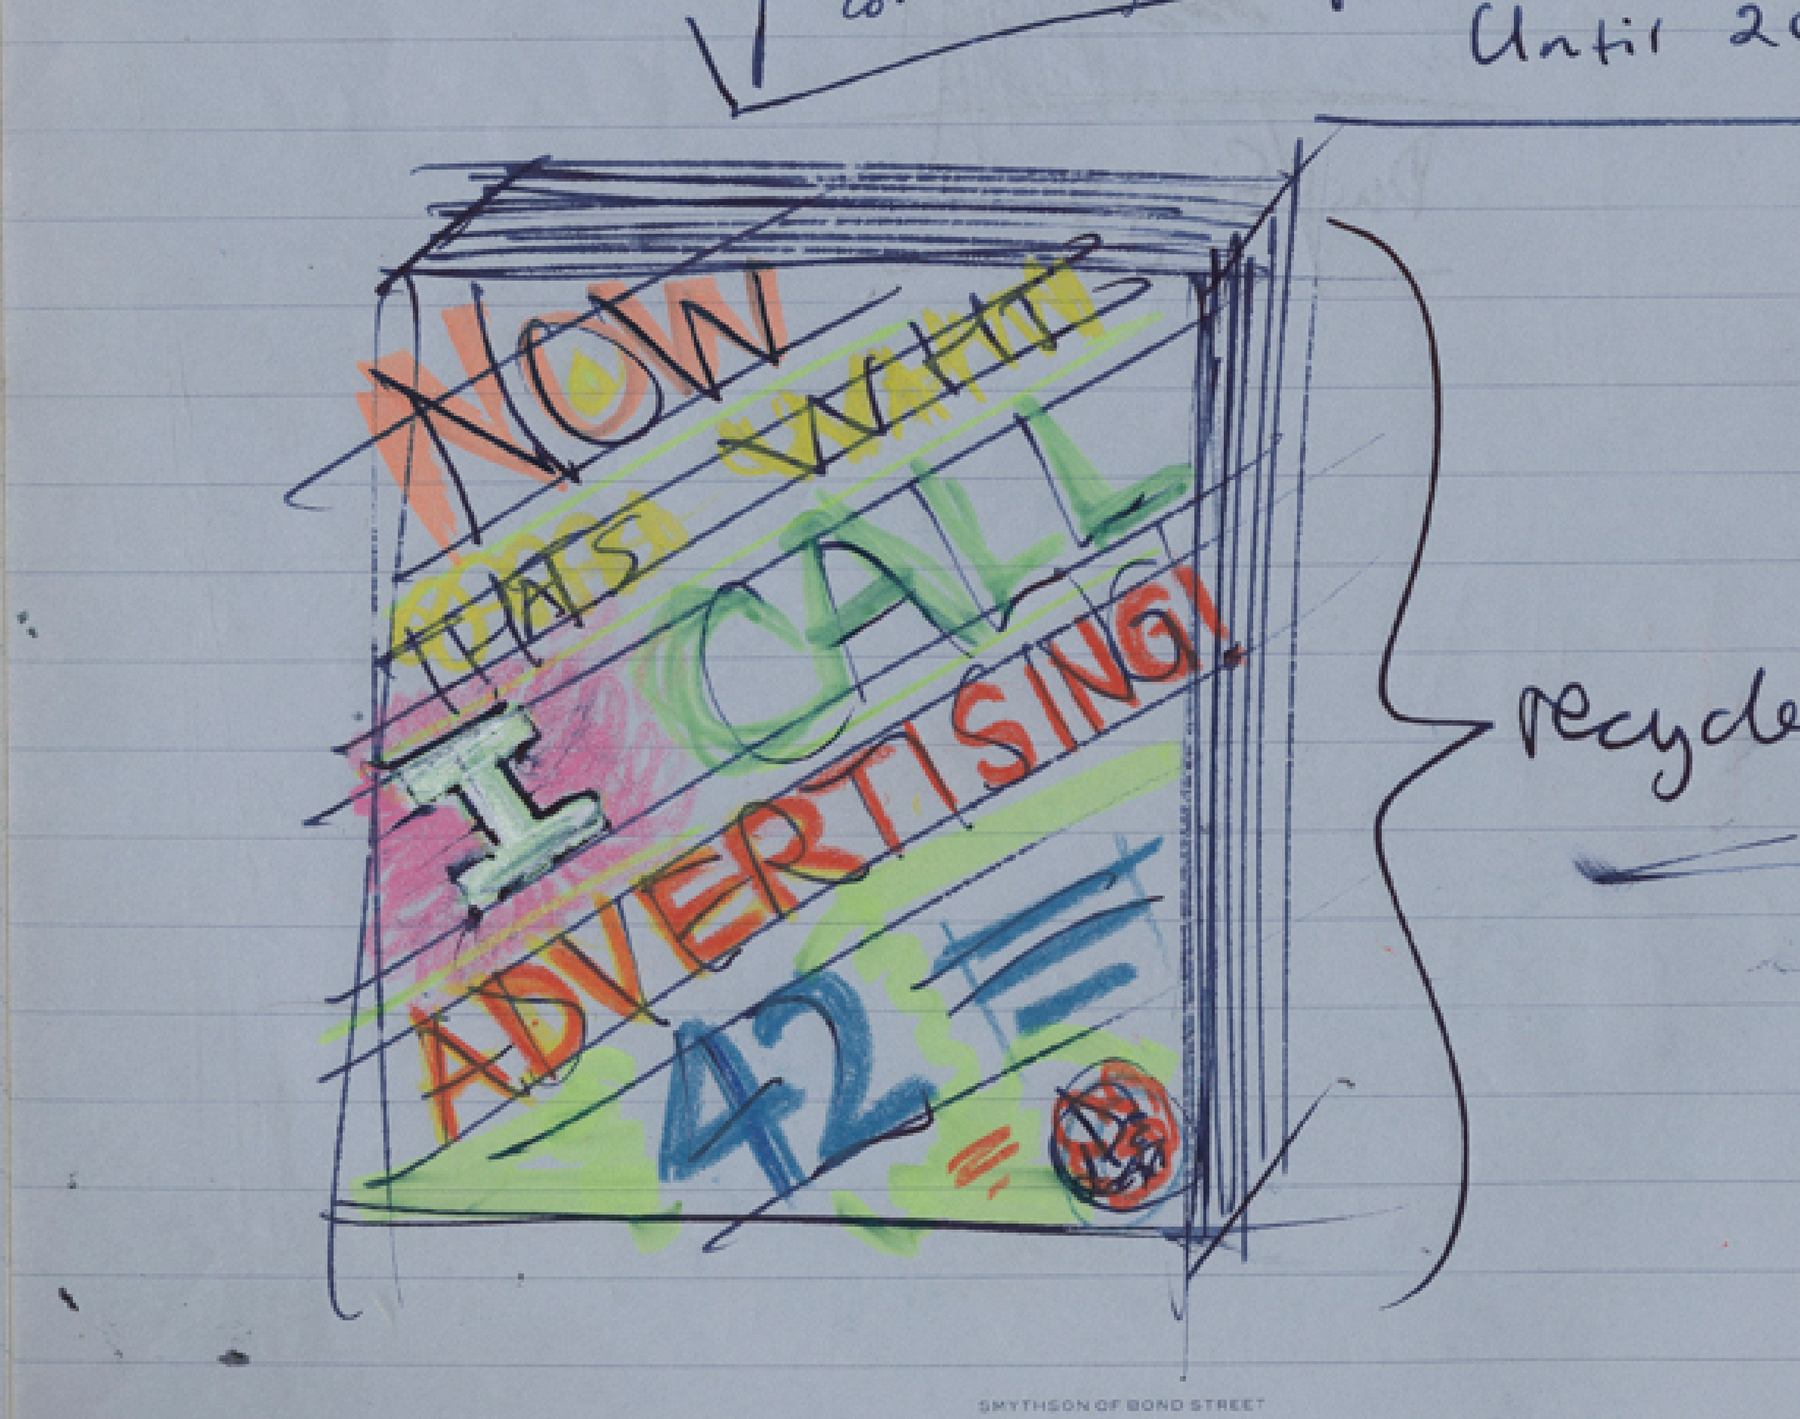 Until 20
NOW
THATS WHAT
I CALL
ADVERTISING!
42
recycle
SMYTHSON OF BOND STREET